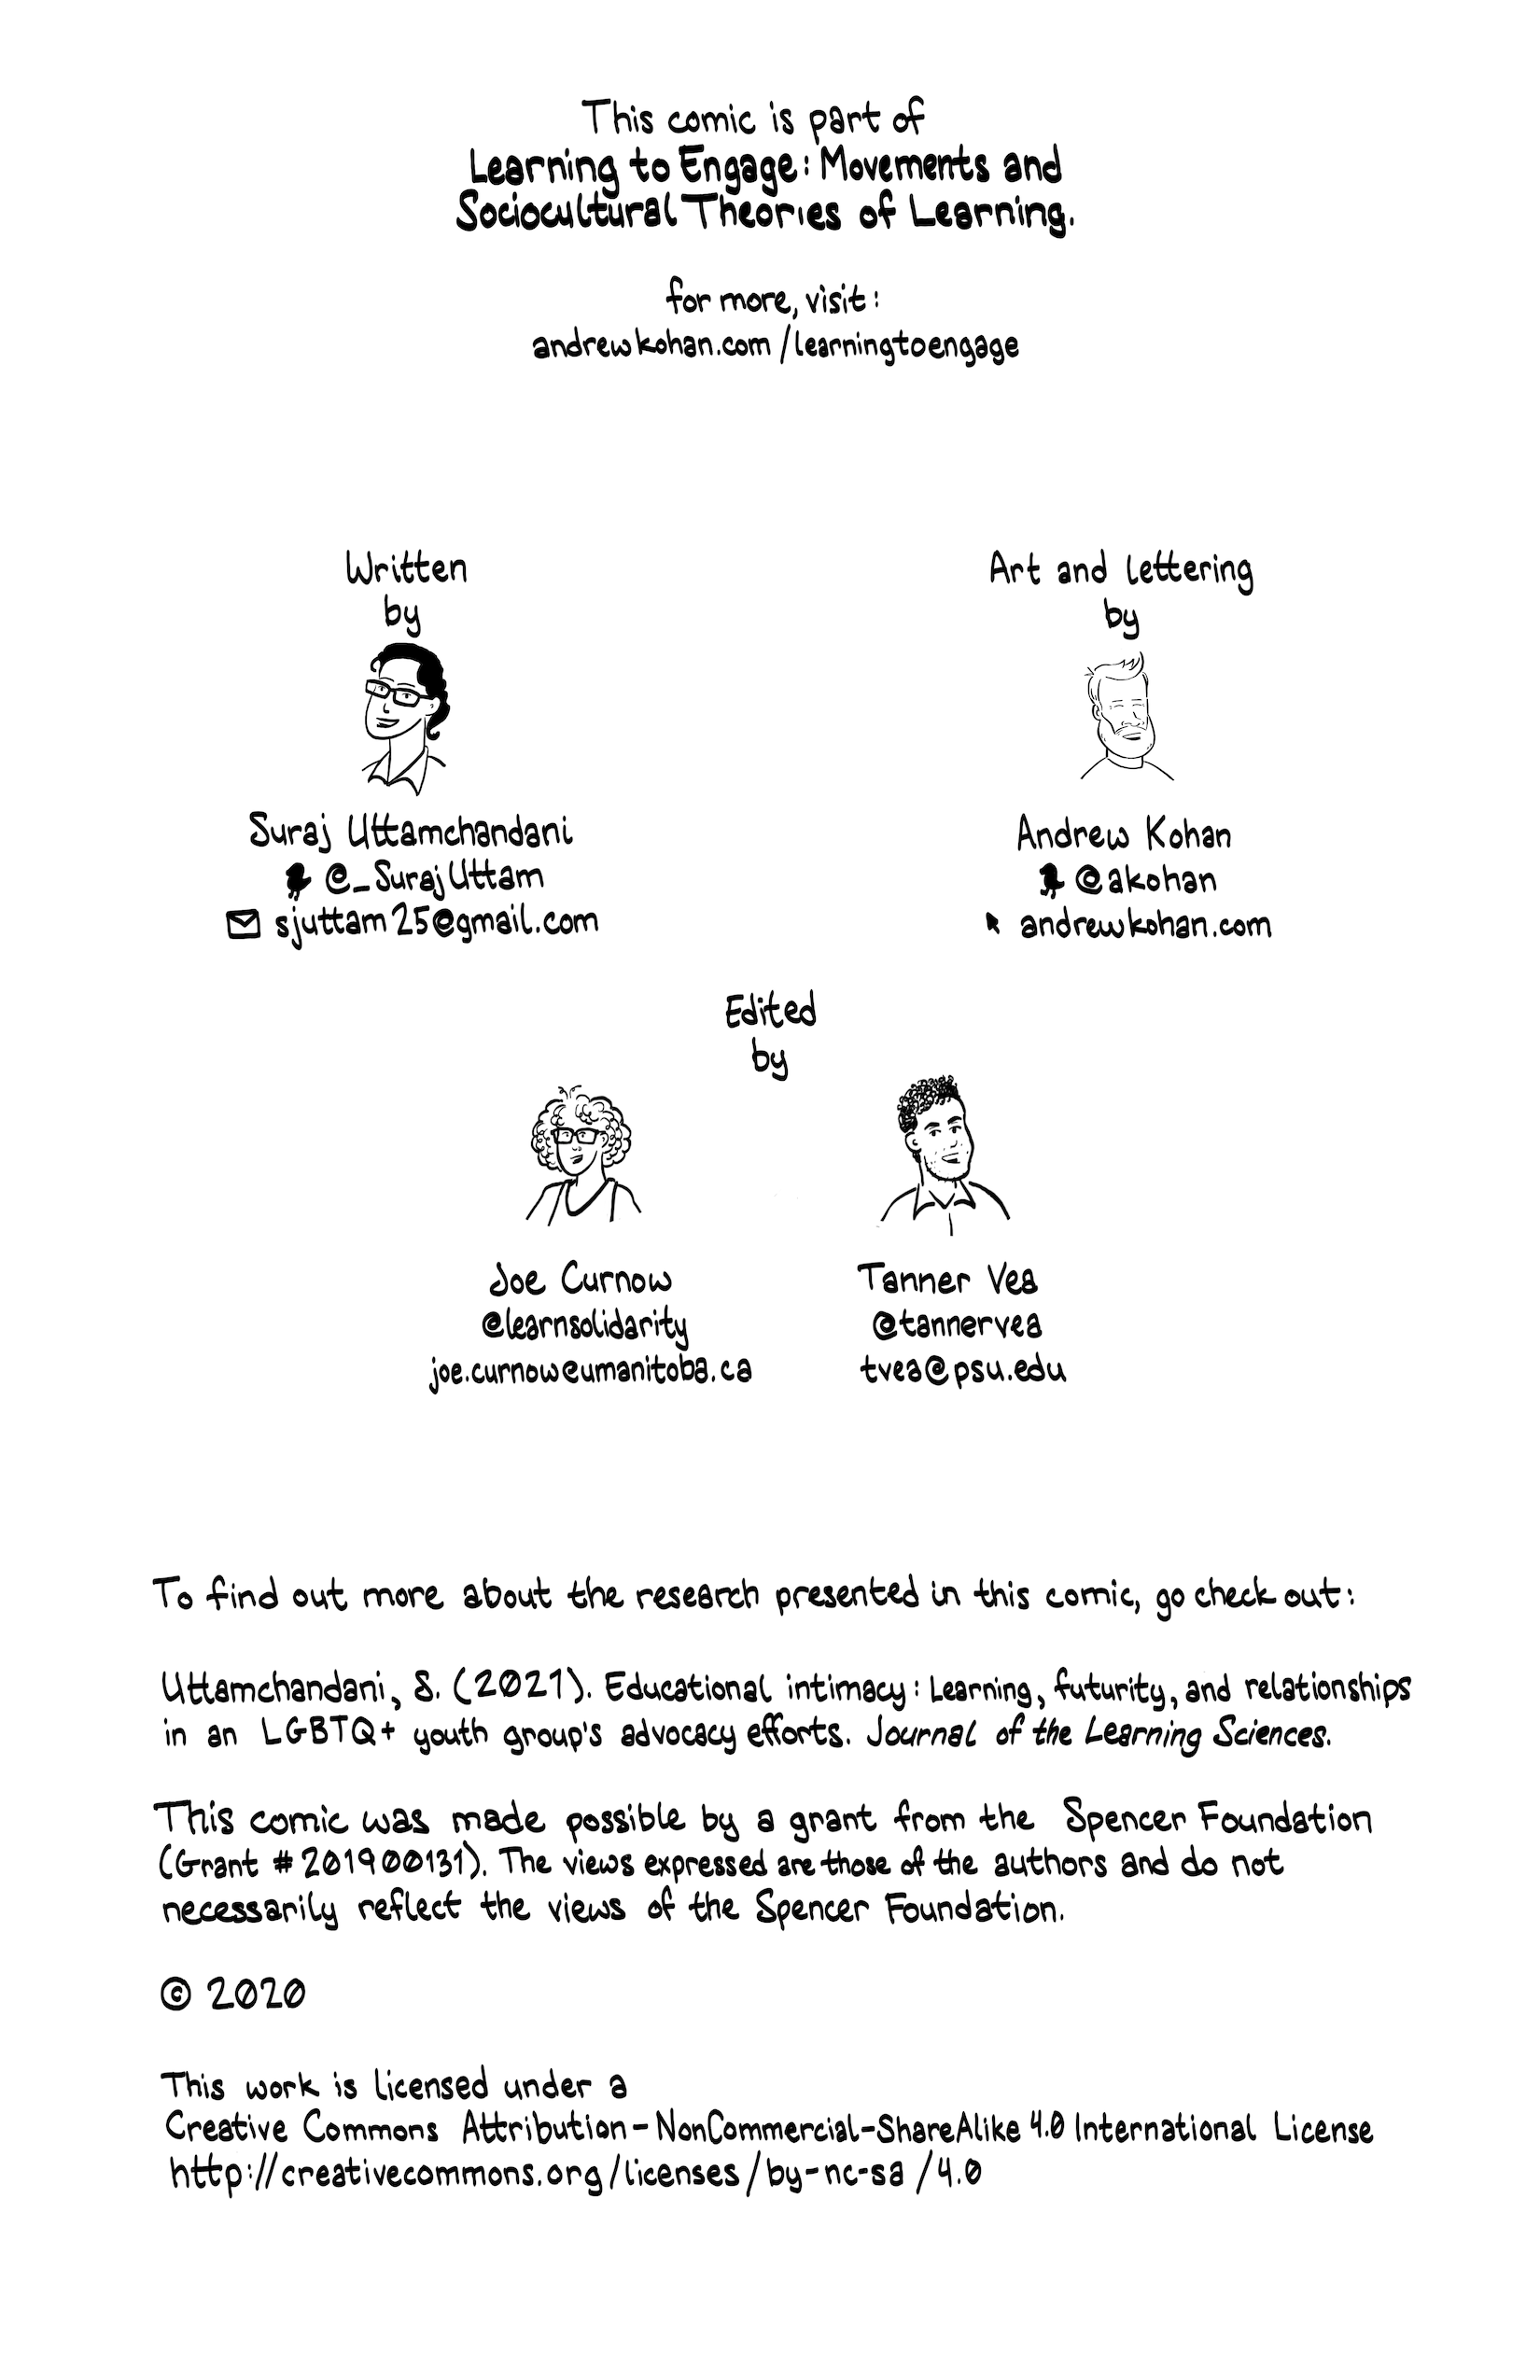 This comic is part of
Learning to Engage: Movements and
Sociocultural Theories of Learning.
for more, visit:
andrewkohan.com/learningtoengage
Written
by
Suraj Uttamchandani
@_SurajUttam
sjuttam25@gmail.com
Art and lettering
by
Andrew Kohan
@akohan
andrewkohan.com
Edited
by
Joe Curnow
@learnsolidarity
joe.curnow@umanitoba.ca
Tanner Vea
@tannervea
tvea@psu.edu
To find out more about the research presented in this comic, go check out:
Uttamchandani, S. (2021). Educational intimacy: Learning, futurity, and relationships
in an LGBTQ+ youth group's advocacy efforts. Journal of the Learning Sciences.
This comic was made possible by a grant from the Spencer Foundation
(Grant #201900131). The views expressed are those of the authors and do not
necessarily reflect the views of the Spencer Foundation.
© 2020
This work is licensed under a
Creative Commons Attribution-NonCommercial-ShareAlike 4.0 International License
http://creativecommons.org/licenses/by-nc-sa/4.0